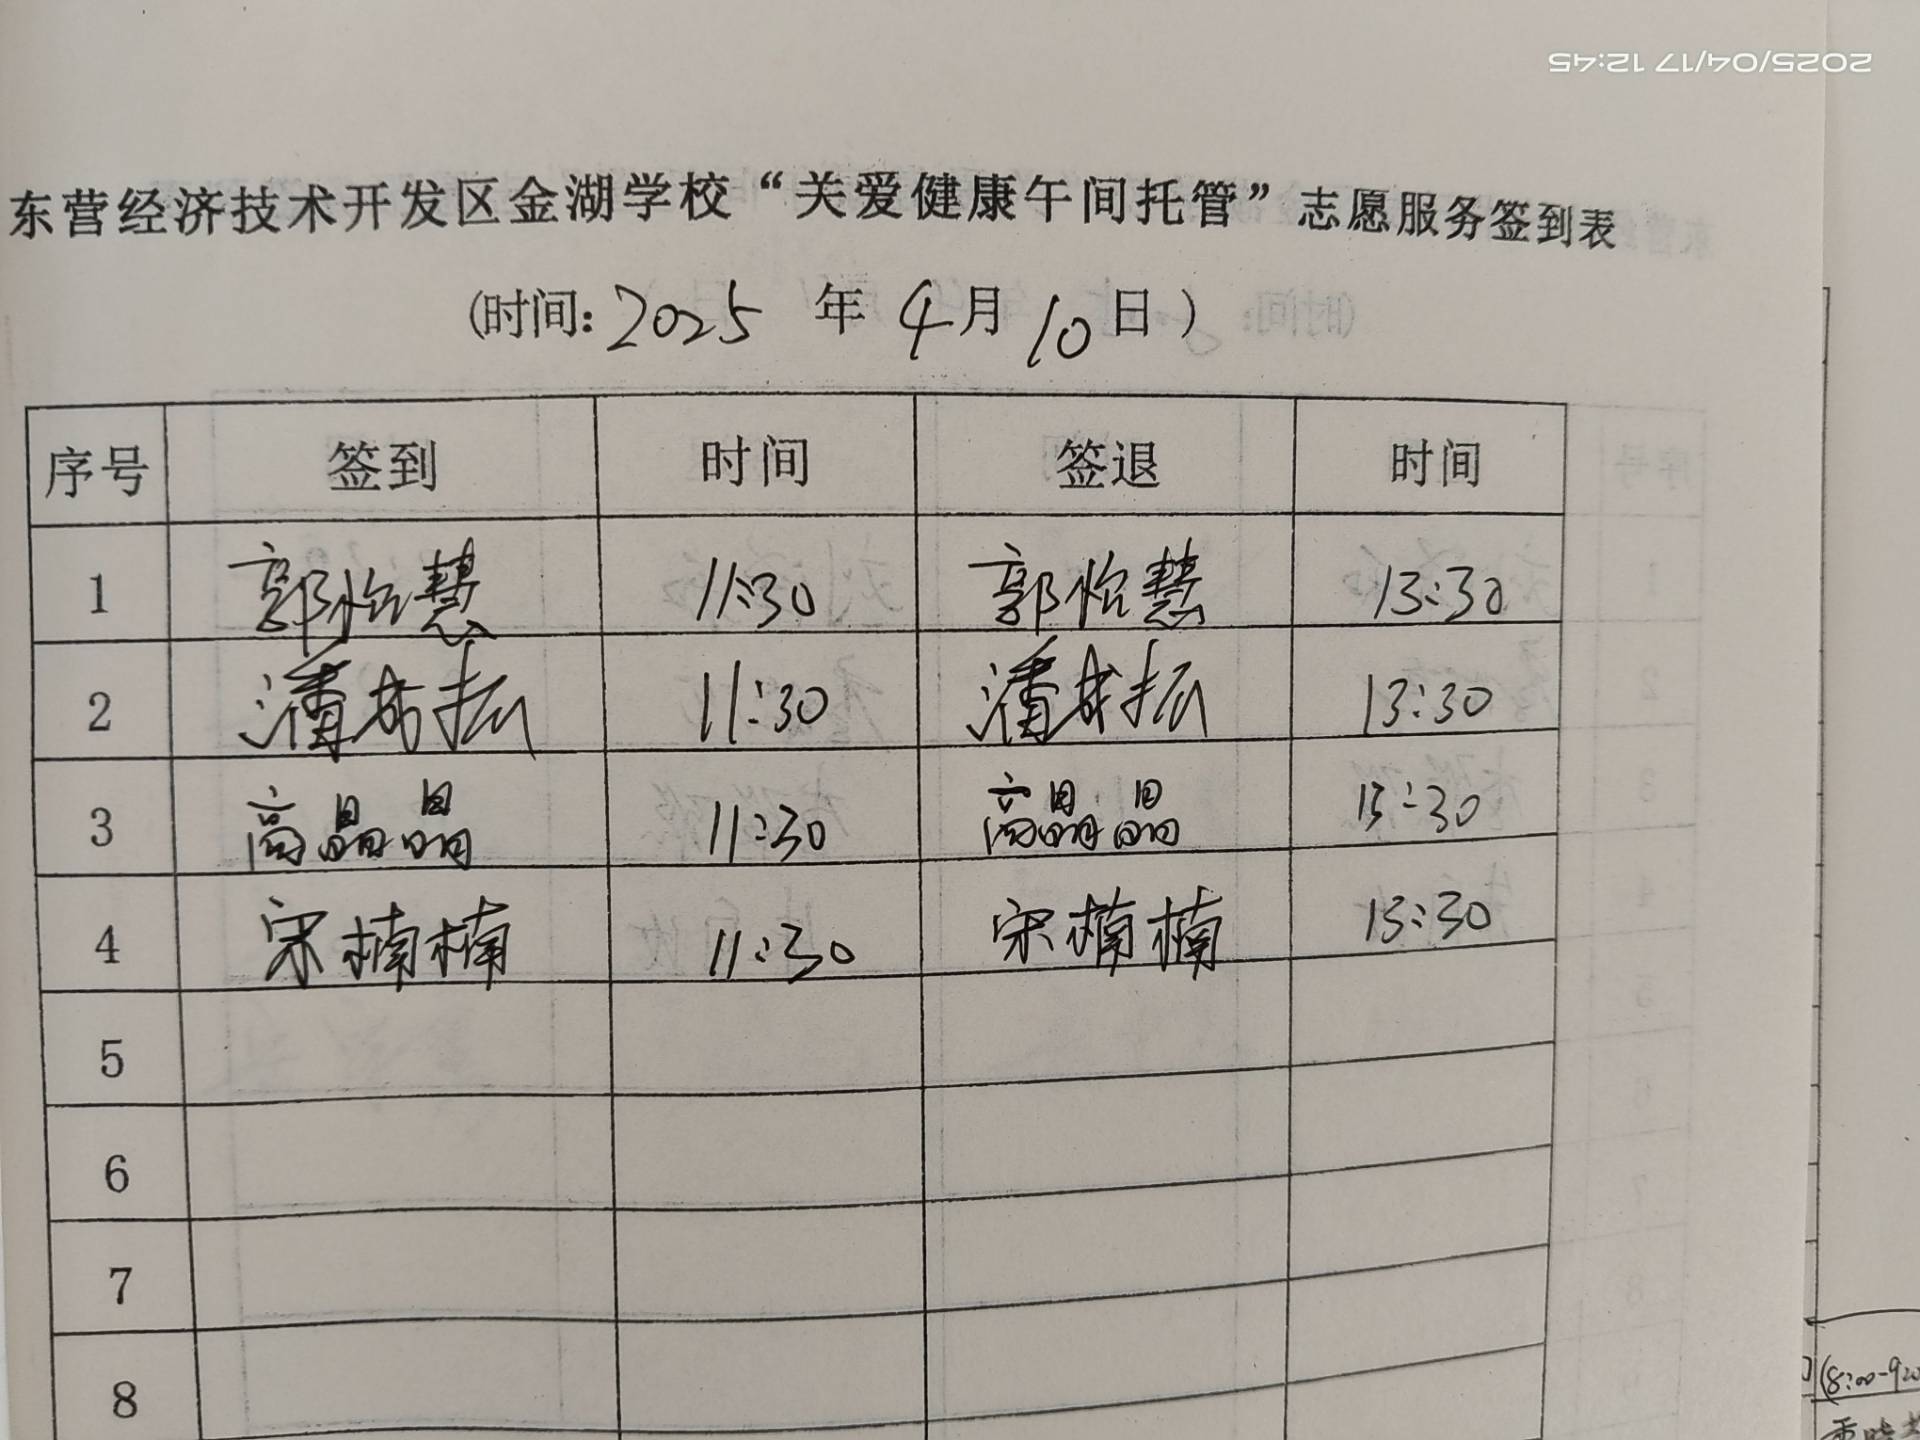 2025/04/17 12:45
东营经济技术开发区金湖学校“关爱健康午间托管”志愿服务签到表
(时间: 2025 年 4月 10日)
序号 签到 时间 签退 时间
1 郭怡慧 11:30 郭怡慧 13:30
2 潘振 11:30 潘振 13:30
3 高晶晶 11:30 高晶晶 13:30
4 宋楠楠 11:30 宋楠楠 13:30
5
6
7
8
(8:00-9:20